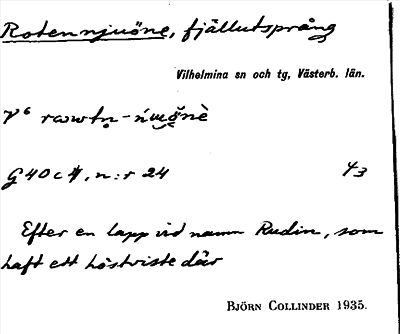 Rotennjuöne, fjällutsprång
Vilhelmina sn och tg, Västerb. län.
G40c4, n:r 24 43
Efter en lapp vid namn Rudin, som
haft ett höstviste där
BJÖRN COLLINDER 1935.